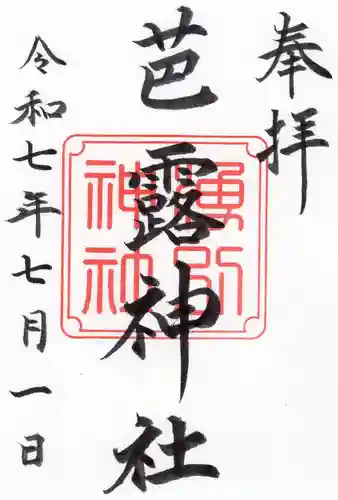 奉拝
芭露神社
令和七年七月一日
湧別
神社